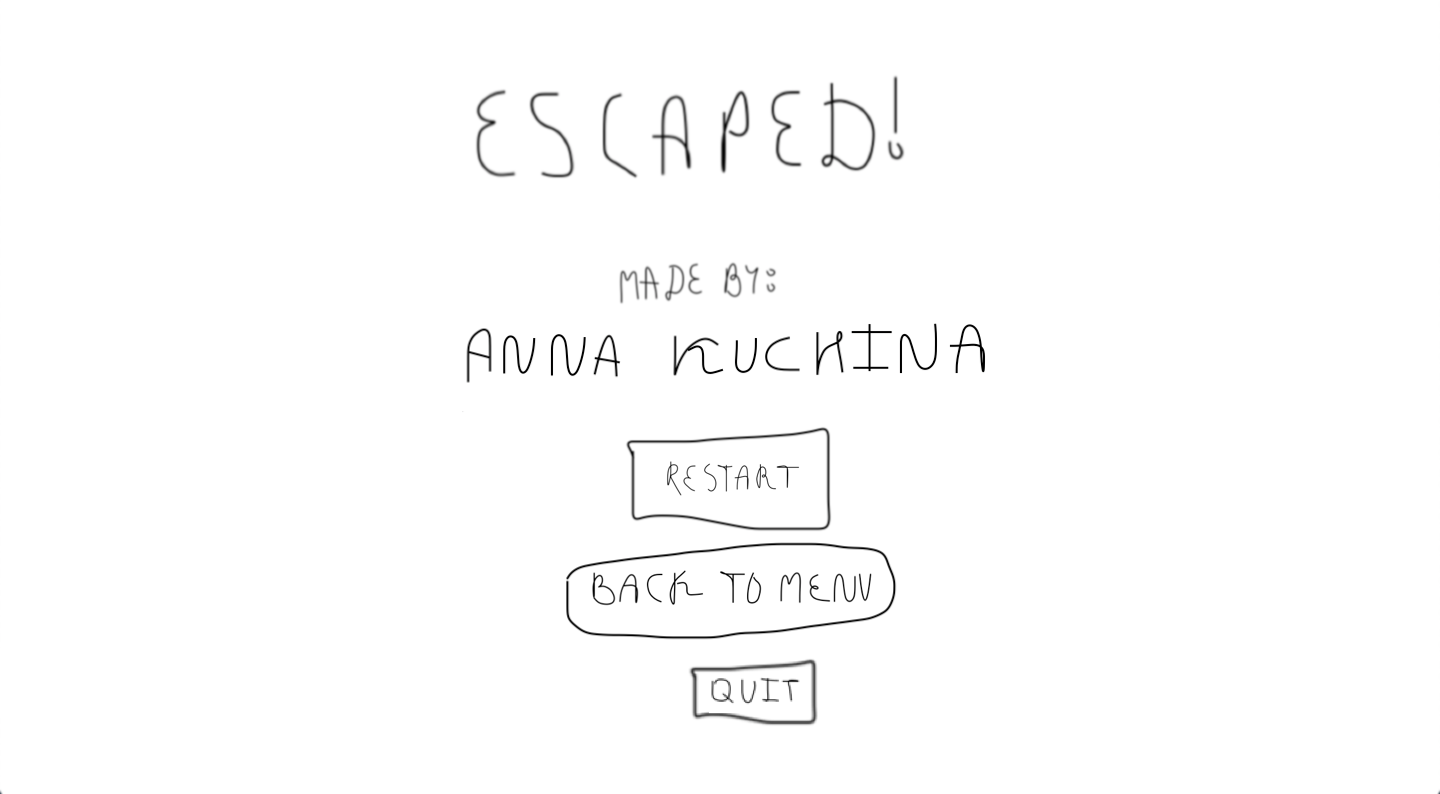 ESCAPED!
MADE BY:
ANNA KUCHINA
RESTART
BACK TO MENU
QUIT